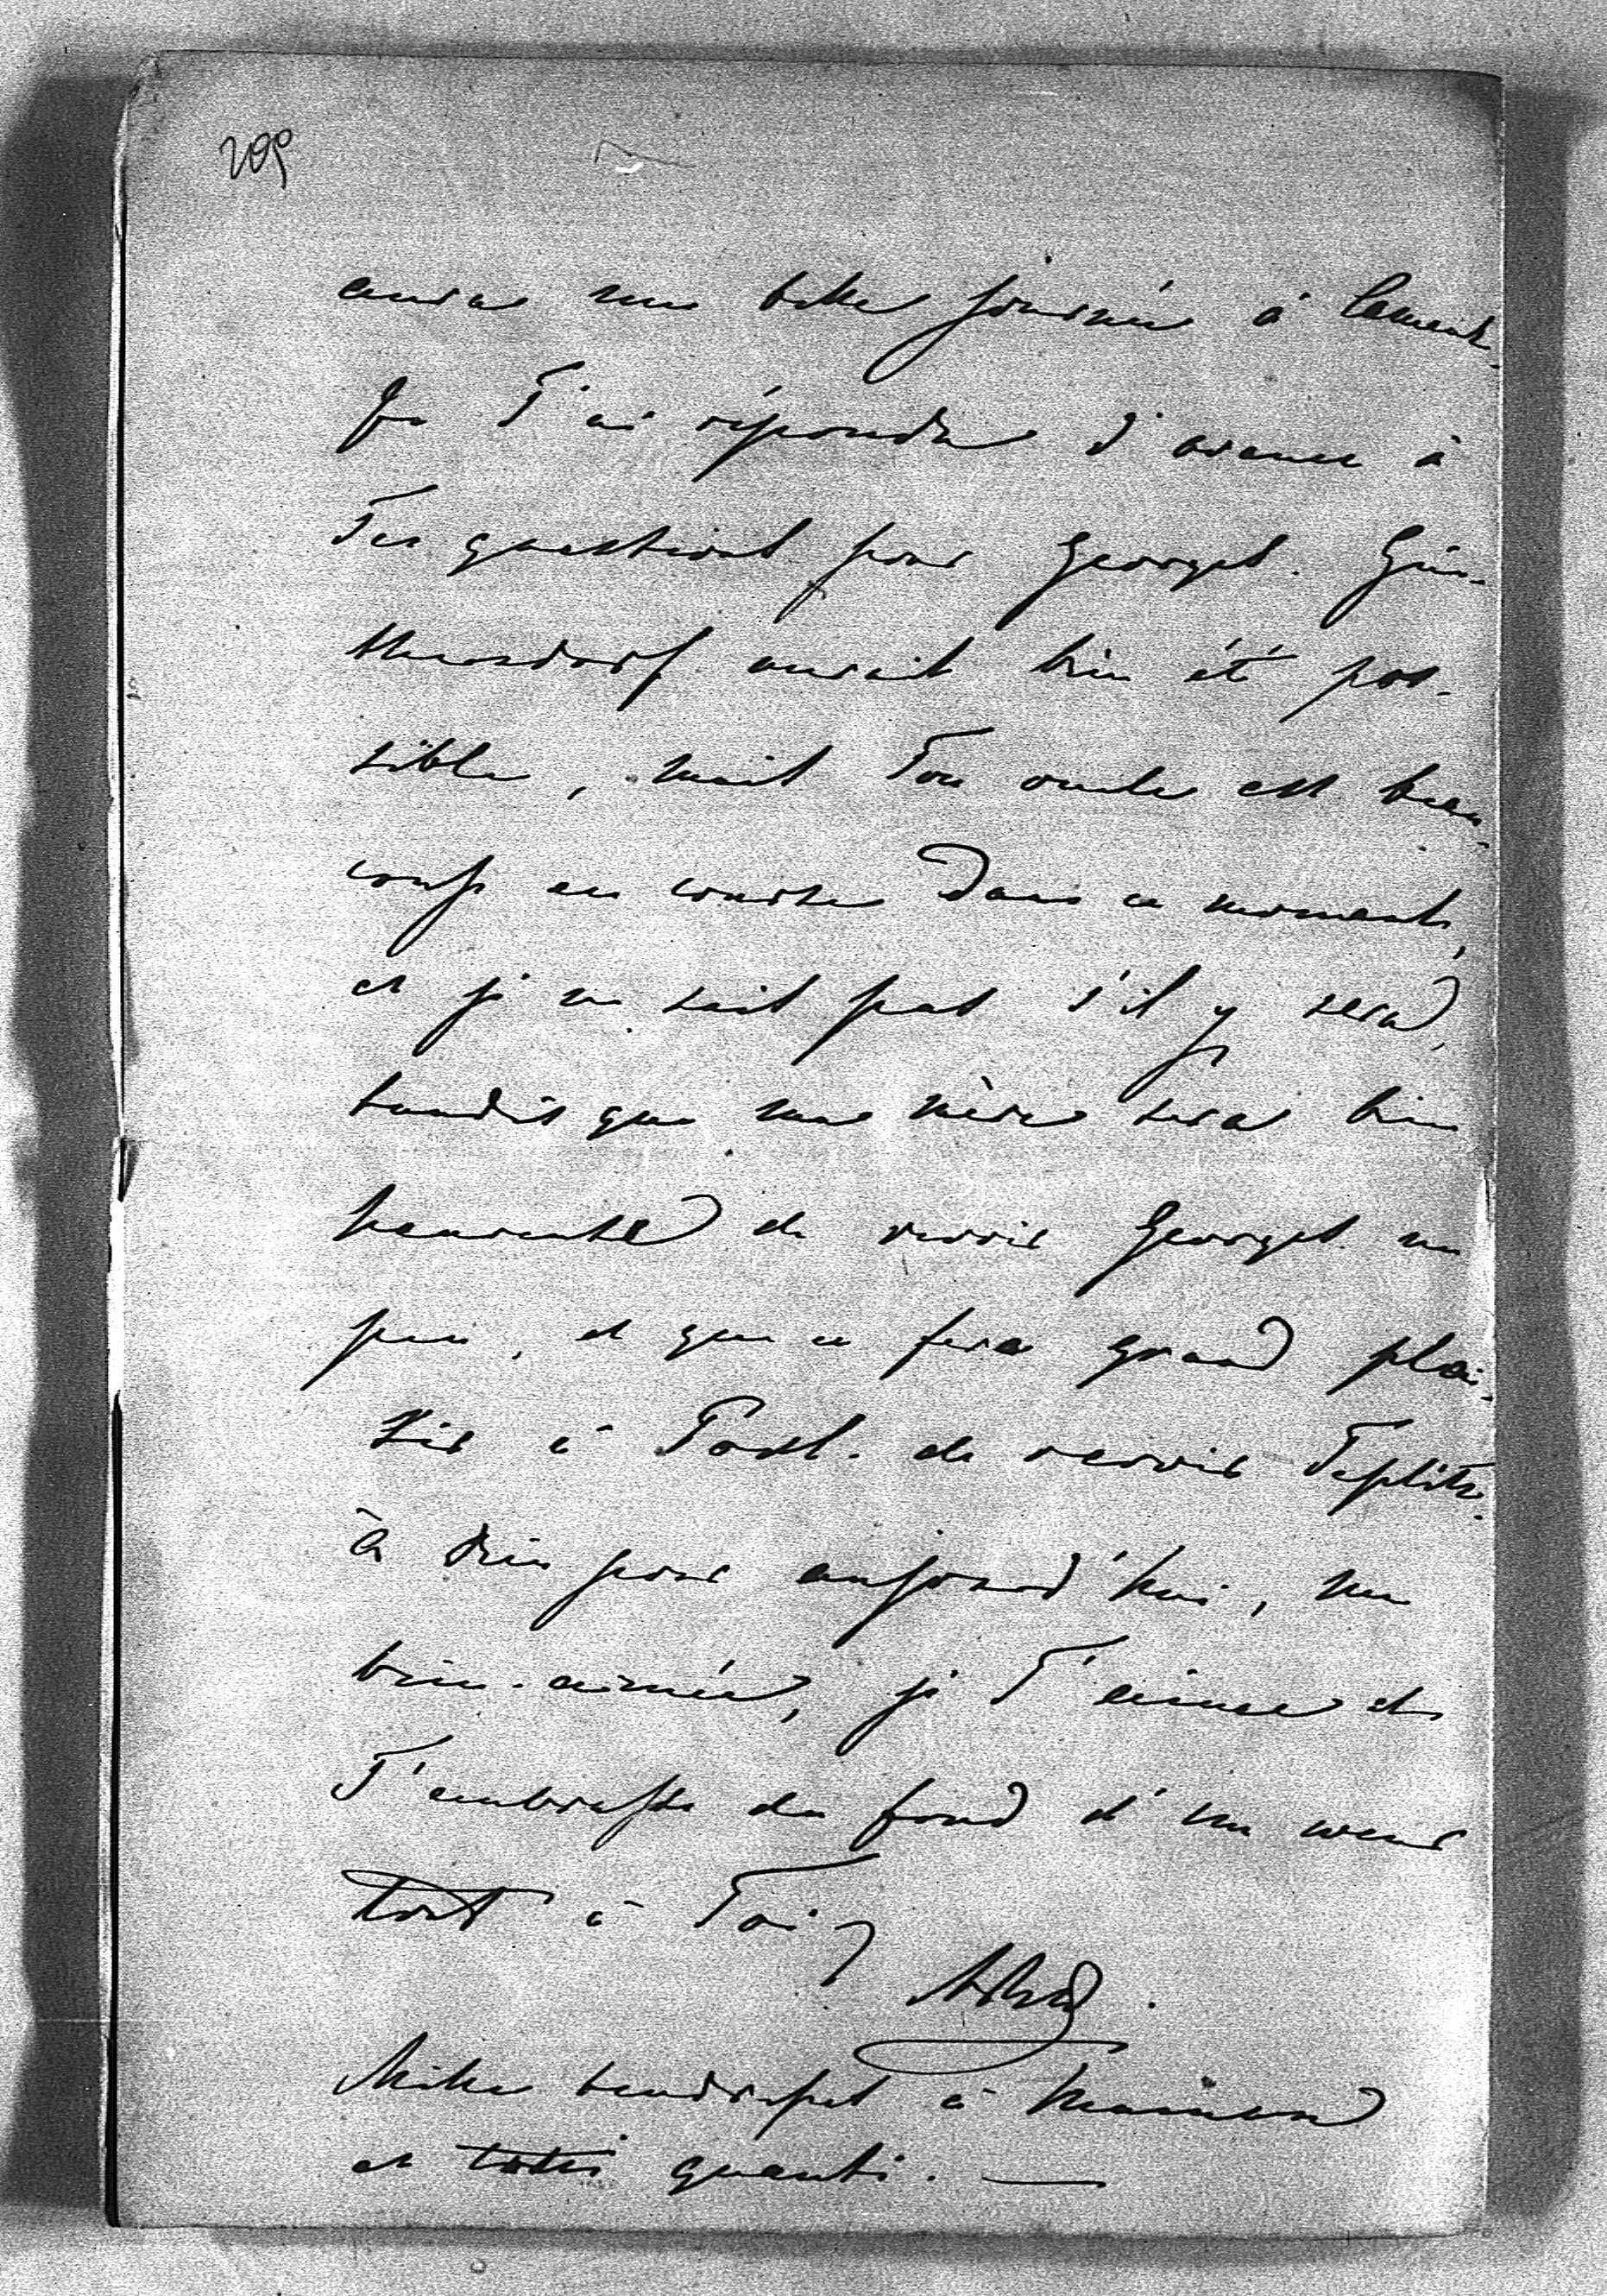 209
auras une belle journée à
Je T'ai répondu d'avance à
Tes questions pour Georges. Gün-
thersdorf aurait bien été pos-
sible, mais Ton oncle est beau-
coup en course dans ce moment,
et je ne sais pas s'il y sera,
tandis que ma mère sera bien
heureuse de revoir Georges un
peu, et que ce fera grand plai-
sir à de revoir Teplitz.
à Dieu pour aujourd'hui, ma
bien-aimée, je T'aime et
T'embrasse du fond d'un cœur
tout à Toi
Mille tendresses à Maman
et tutti quanti. —